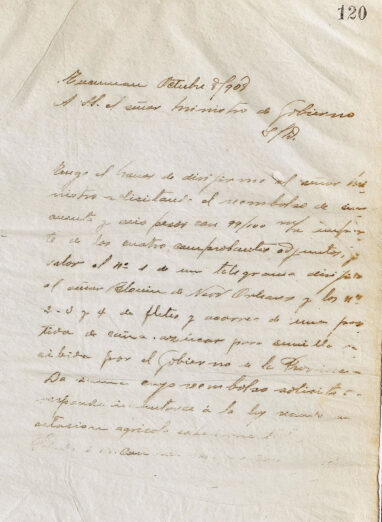 120
Tucuman Octubre 8/908
A S.E. el señor Ministro de Gobierno
S/D.
Tengo el honor de dirijirme al señor Mi
nistro solicitando el reembolso de cin
cuenta y seis pesos con m/n impor
te de los cuatro comprobantes adjuntos,
valor el Nº 1 de un telegrama dirijido
al señor de New Orleans y los Nos
2-3 y 4 de fletes y acarreo de una par
tida de caña azucar para semilla re
cibida por el Gobierno de la Provincia
Da suma cuyo reembolso solicito co
á la ley
agricola